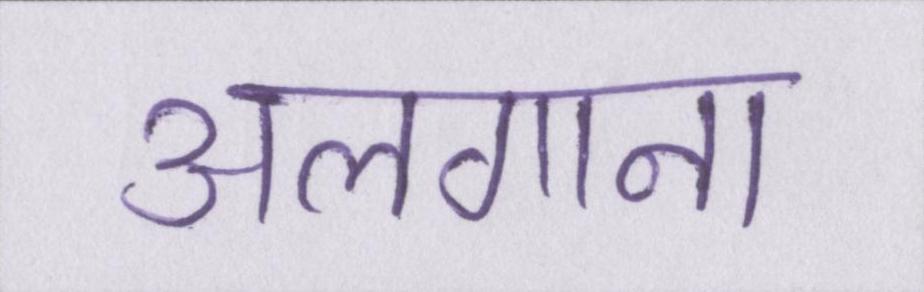 अलगाना